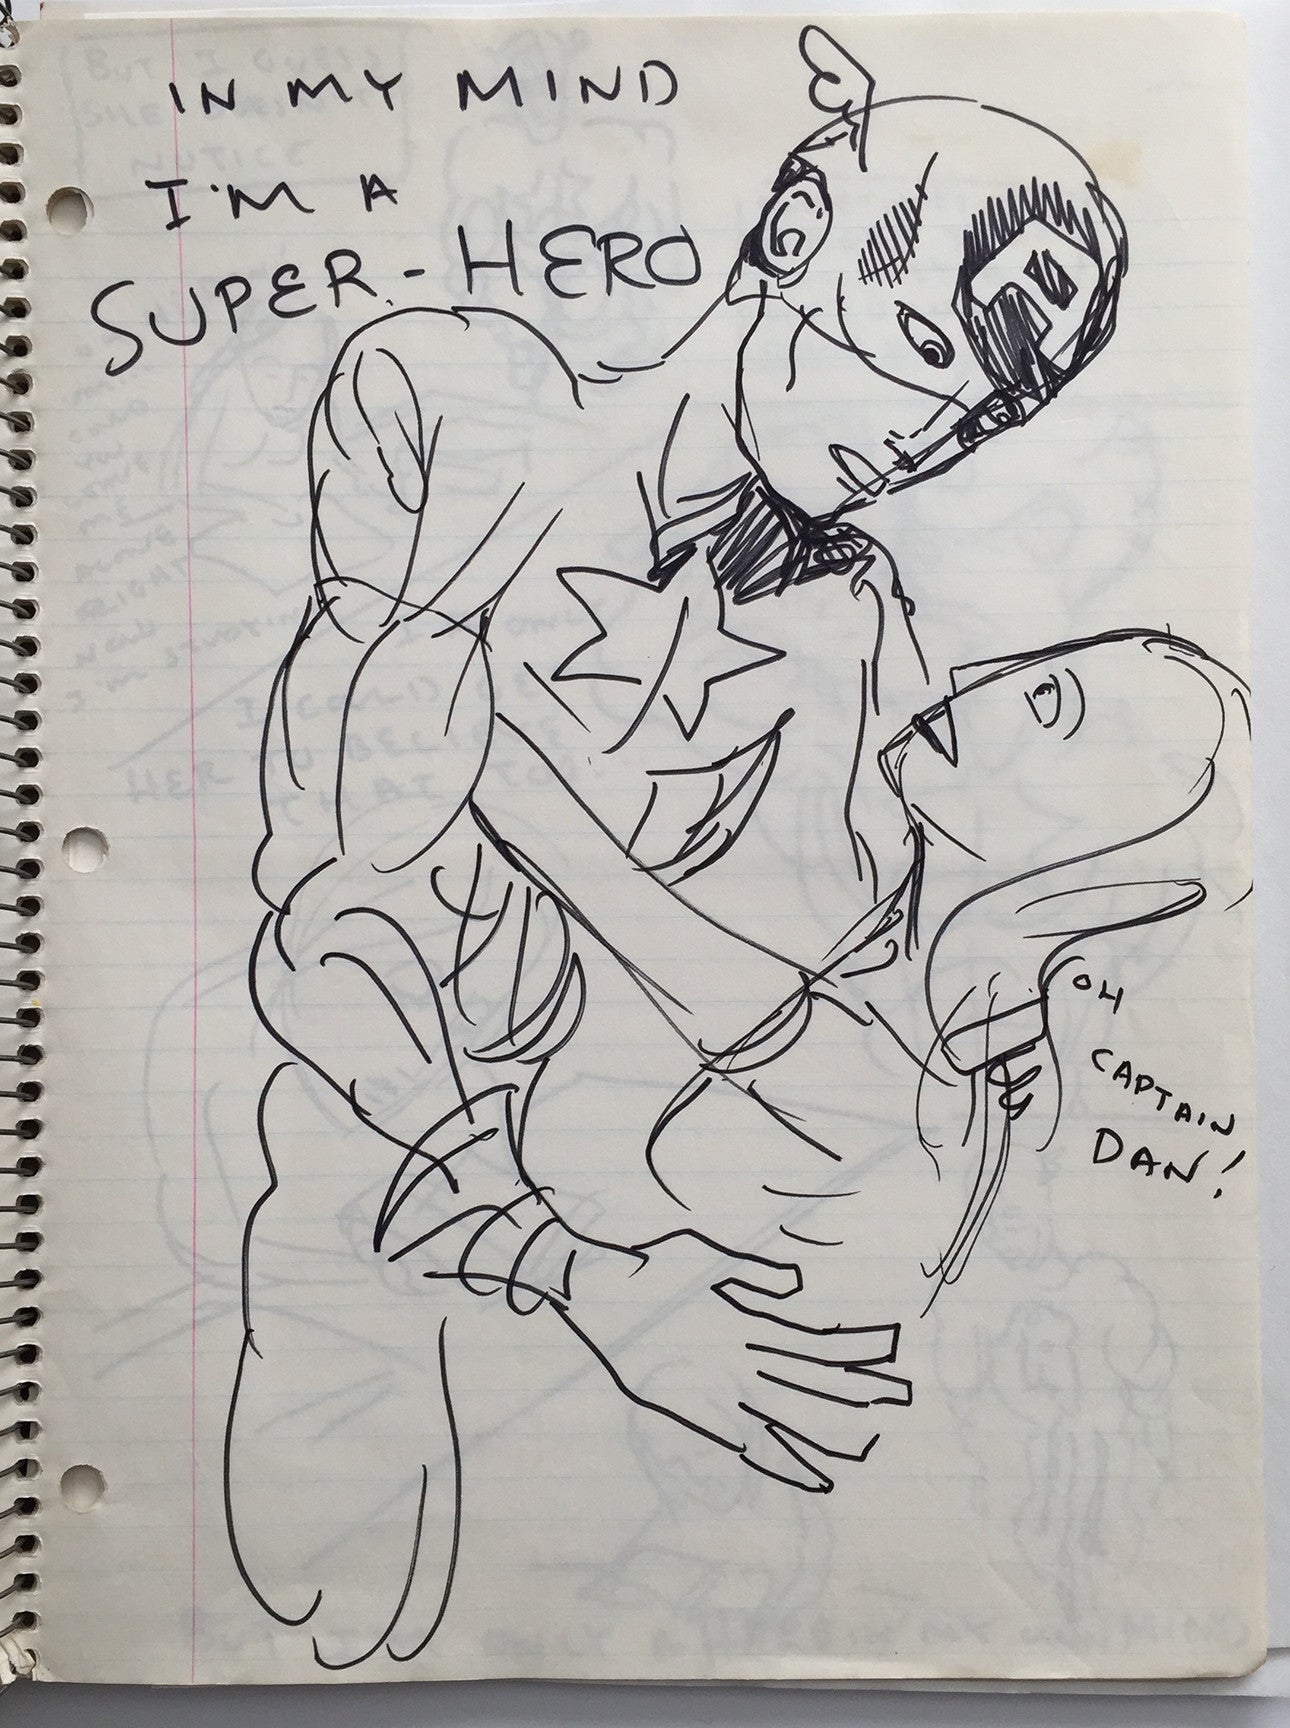 IN MY MIND
I'M A
SUPER-HERO
OH
CAPTAIN
DAN!